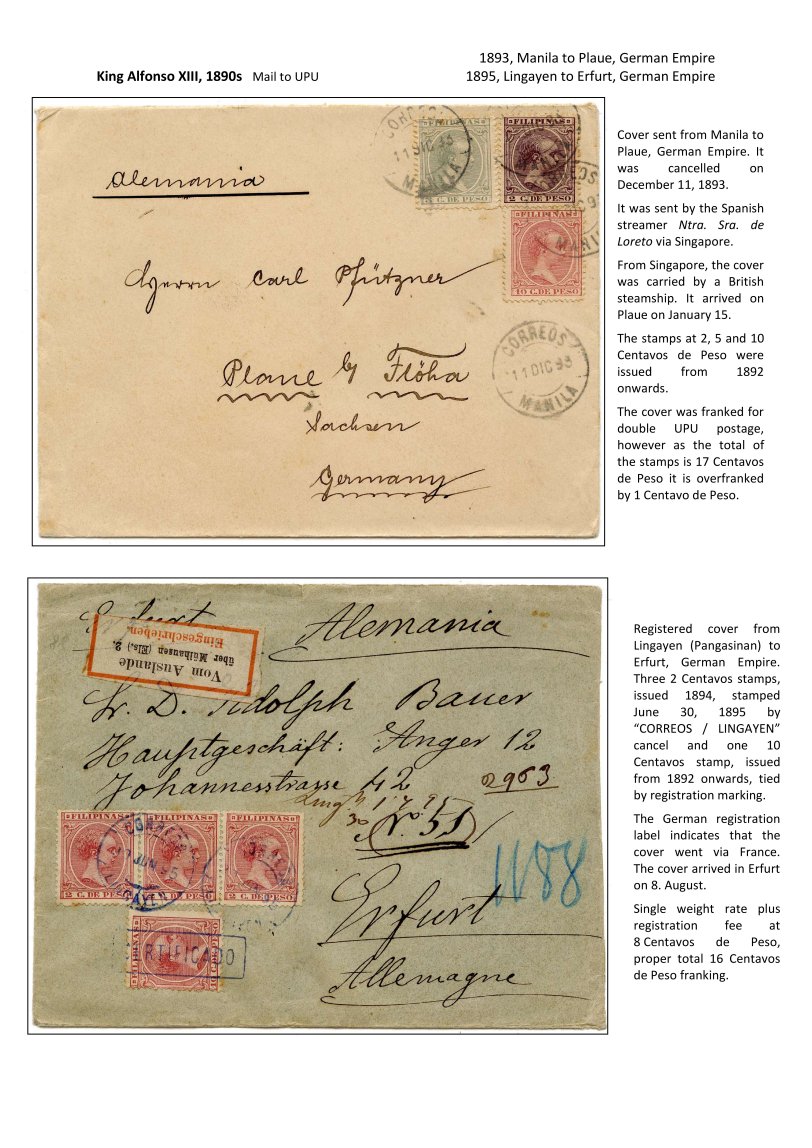 1893, Manila to Plaue, German Empire
King Alfonso XIII, 1890s Mail to UPU
1895, Lingayen to Erfurt, German Empire
CORREOS
11 DIC 93
MANILA
FILIPINAS
FILIPINAS
2 C. DE PESO
FILIPINAS
10 C. DE PESO
Alemania
Herrn Carl Pfützner
CORREOS
11 DIC 93
MANILA
Plaue b/ Flöha
Sachsen
Germany
Cover sent from Manila to
Plaue, German Empire. It
was cancelled on
December 11, 1893.
It was sent by the Spanish
streamer Ntra. Sra. de
Loreto via Singapore.
From Singapore, the cover
was carried by a British
steamship. It arrived on
Plaue on January 15.
The stamps at 2, 5 and 10
Centavos de Peso were
issued from 1892
onwards.
The cover was franked for
double UPU postage,
however as the total of
the stamps is 17 Centavos
de Peso it is overfranked
by 1 Centavo de Peso.
Erfurt. Alemania
Vom Auslande
über Mülhausen (Els.) 2.
Eingeschrieben.
D. Rudolph Bauer
Hauptgeschäft: Anger 12
Johannesstrasse 42
2963
No 51
1188
FILIPINAS FILIPINAS FILIPINAS
CORREOS
2 C. DE PESO 2 C. DE PESO 2 C. DE PESO
FILIPINAS
CERTIFICADO
Erfurt
Allemagne
Registered cover from
Lingayen (Pangasinan) to
Erfurt, German Empire.
Three 2 Centavos stamps,
issued 1894, stamped
June 30, 1895 by
“CORREOS / LINGAYEN”
cancel and one 10
Centavos stamp, issued
from 1892 onwards, tied
by registration marking.
The German registration
label indicates that the
cover went via France.
The cover arrived in Erfurt
on 8. August.
Single weight rate plus
registration fee at
8 Centavos de Peso,
proper total 16 Centavos
de Peso franking.